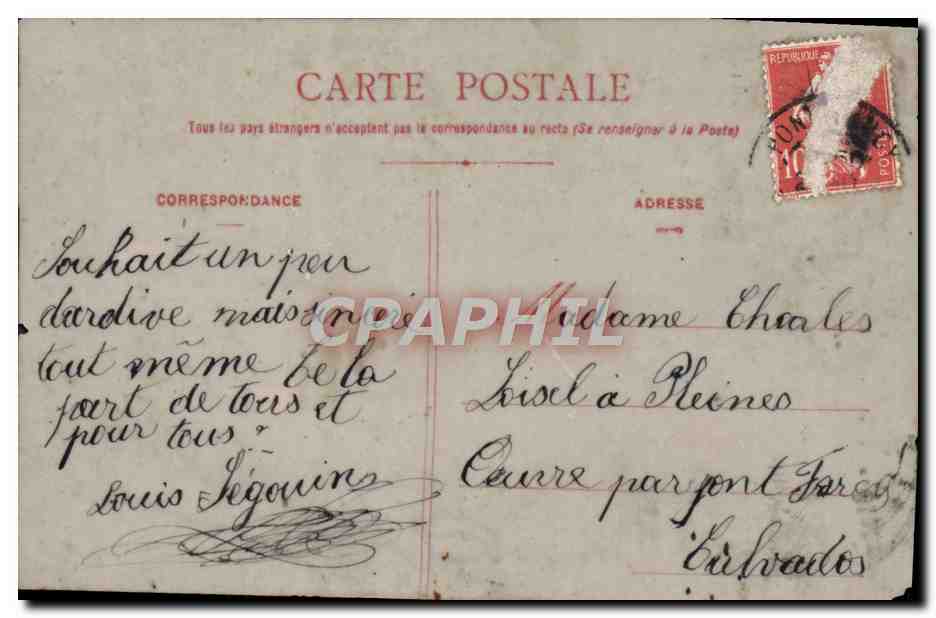 CARTE POSTALE
Tous les pays étrangers n'acceptent pas la correspondance au recto (Se renseigner à la Poste)
REPUBLIQUE
10
POSTES
CORRESPONDANCE
Souhait un peu
dardive mais sincire
tout même De la
part de tous et
pour tous.
Louis Ségouins
ADRESSE
Madame Charles
Loisel à Pleines
Oeuvre par pont Farcy
Calvados
CPAPHIL